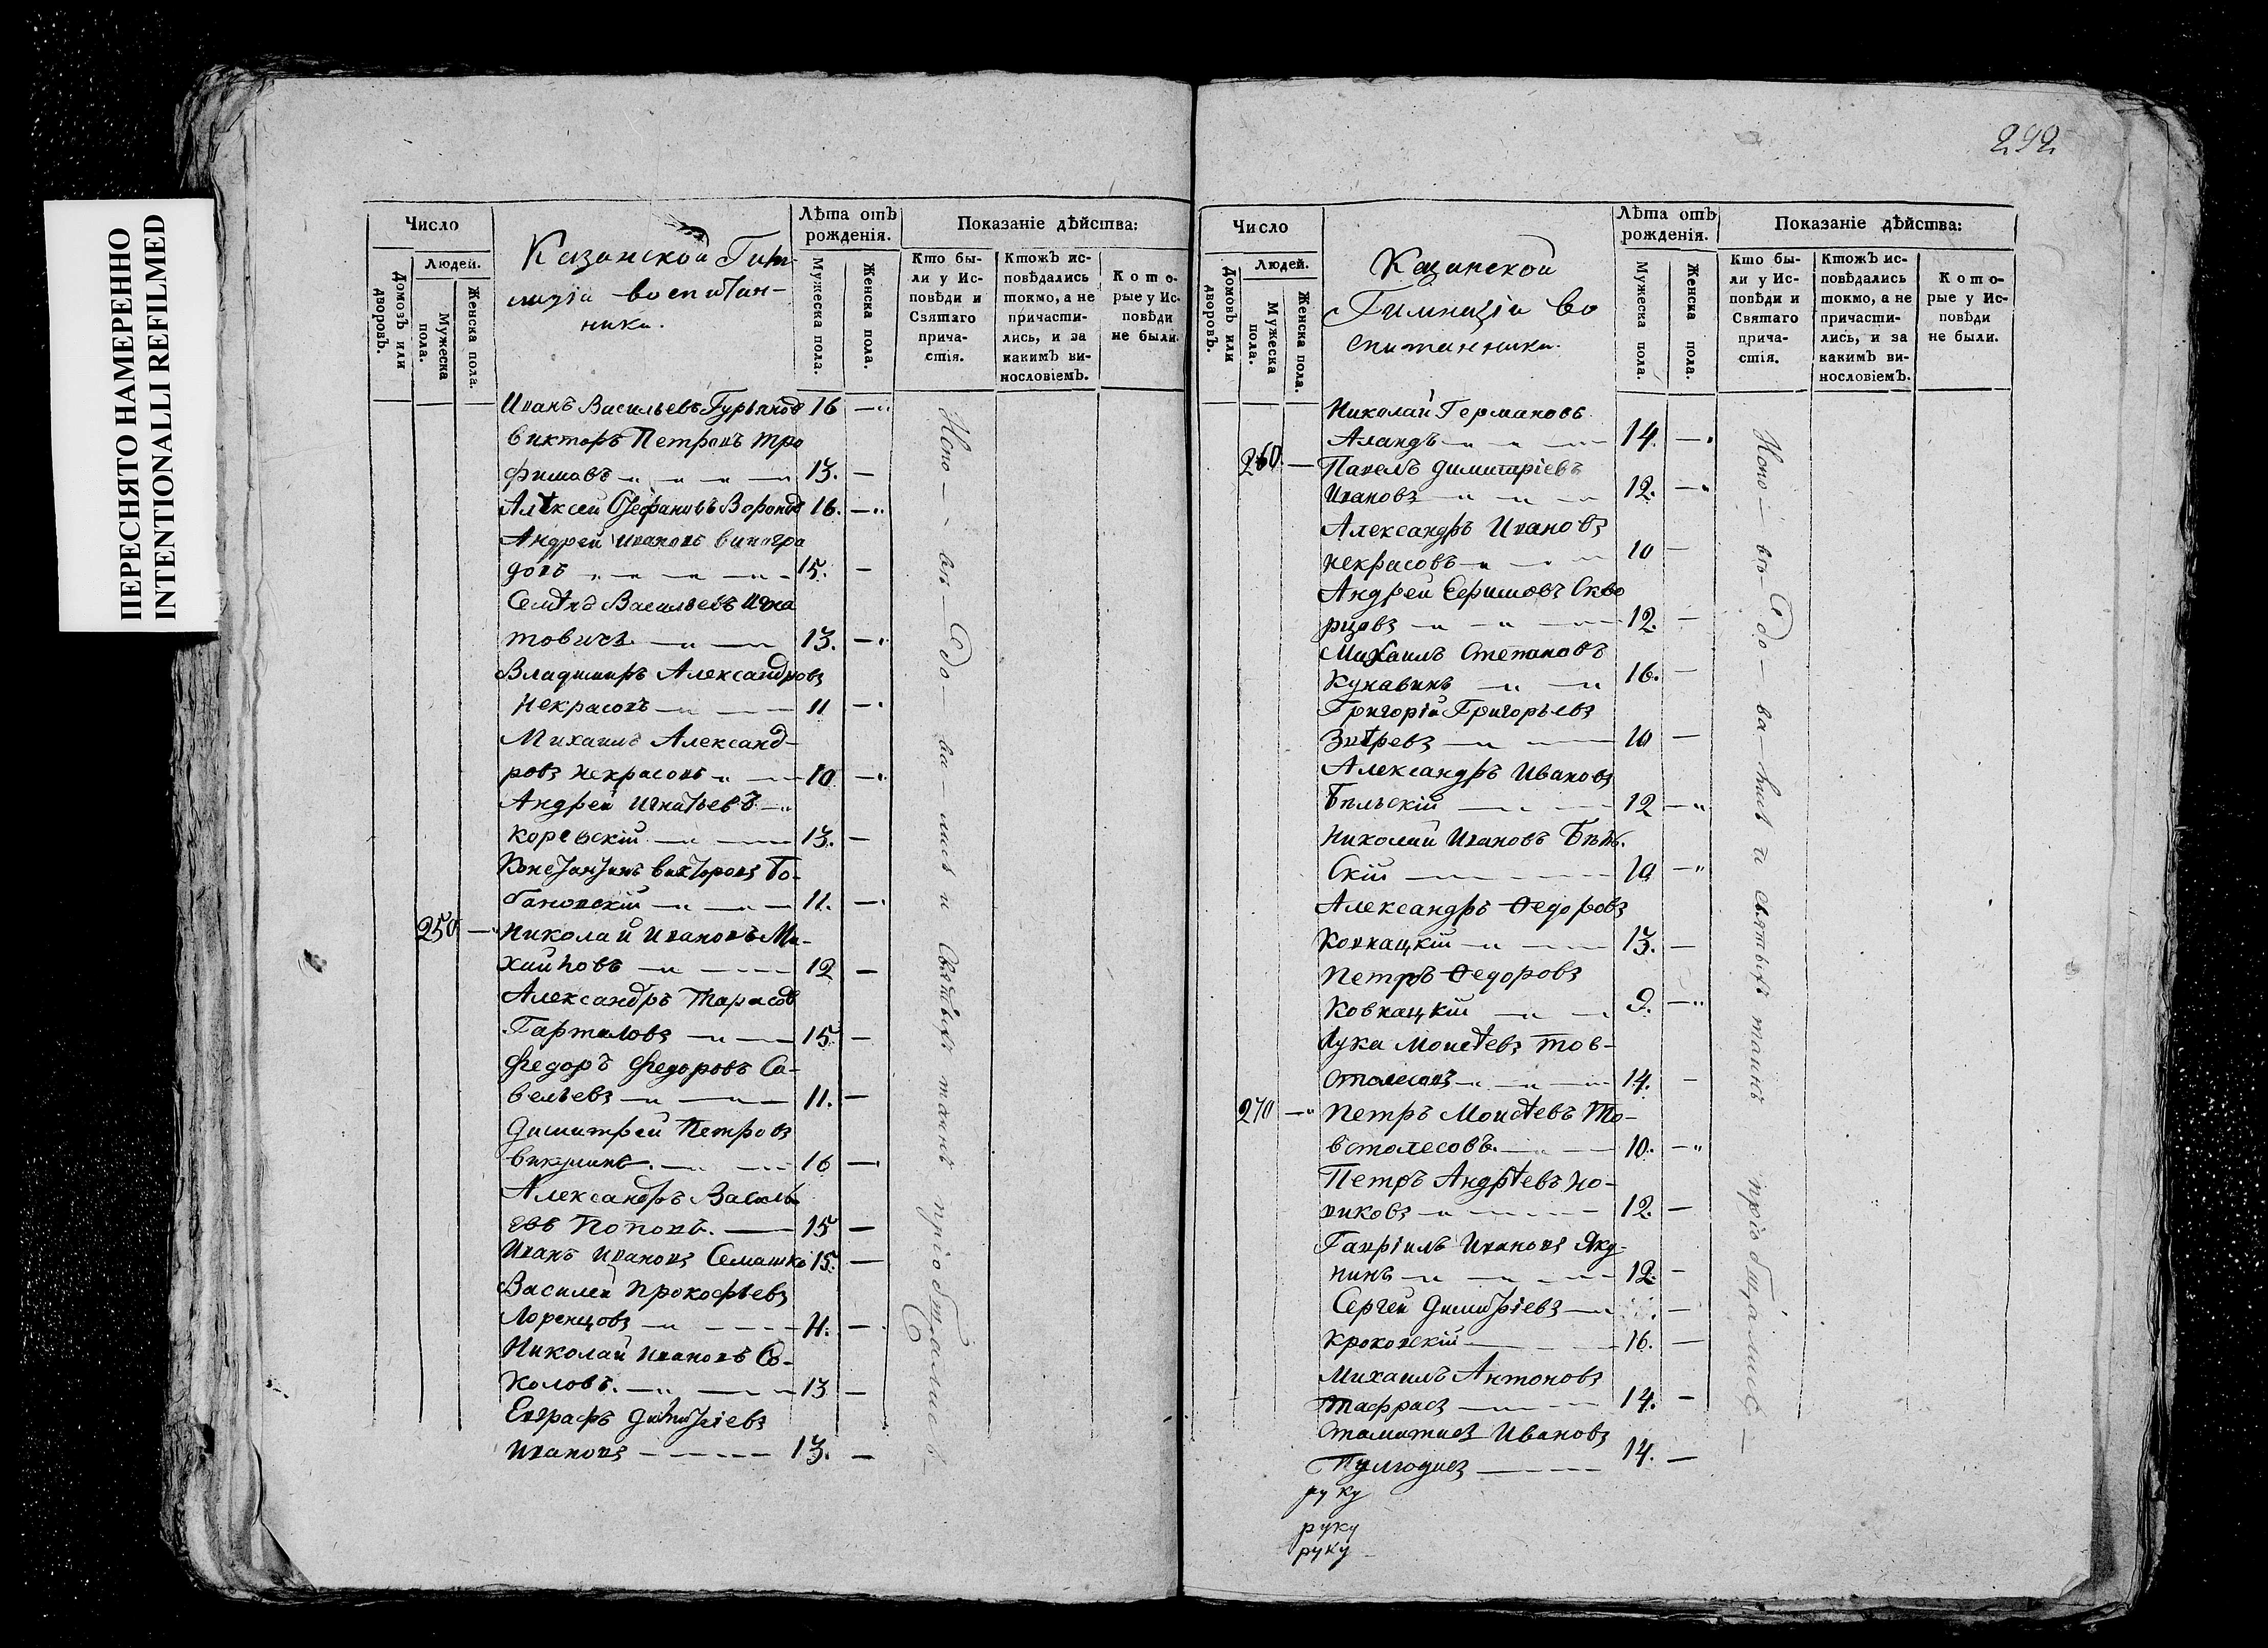 ПЕРЕСНЯТО НАМЕРЕННО
INTENTIONALLI REFILMED
Число
Людей.
Домовъ или дворовъ.
Мужеска пола.
Женска пола.
Казанской Гим
назіи воспитан-
ники.
Лѣта отъ рожденія.
Мужеска пола.
Женска пола.
Показаніе дѣйства:
Кто бы-
ли у Ис-
повѣди и
Святаго
прича-
стія.
Ктожъ ис-
повѣдались
токмо, а не
причасти-
лись, и за
какимъ ви-
нословіемъ.
Кото-
рые у Ис-
повѣди
не были.
Иванъ Васильевъ Гурьяновъ 16 —
Викторъ Петровъ Тро
фимовъ 13. —
Алѣксей Стефановъ Воронов 16. —
Андрей Ивановъ Виногра
довъ 15. —
Семѣнъ Васильевъ Игна
товичъ 13. —
Владимиръ Александровъ
Некрасовъ 11 —
Михаилъ Александ-
ровъ Некрасовъ 10 —
Андрей Игнатьевъ
Коревскій 13. —
Константинъ Викторовъ Бо-
бановскій 11. —
250 — Николай Ивановъ Ми-
хайловъ 12 —
Александръ Тарасов
Гарталовъ 15 —
Федоръ Федоровъ Са-
вельевъ 11. —
Димитрей Петровъ
Викулинъ 16 —
Александръ Василь
евъ Поповъ. 15 —
Иванъ Ивановъ Семашко 15. —
Василей Прокофьевъ
Лоренцовъ 11. —
Николай Ивановъ Со-
коловъ. 13 —
Евграфъ Димитріевъ
Ивановъ 13. —
и святыхъ таинъ пріобщались
292
Число
Людей.
Домовъ или дворовъ.
Мужеска пола.
Женска пола.
Казанской
Гимназіи во
спитанники.
Лѣта отъ рожденія.
Мужеска пола.
Женска пола.
Показаніе дѣйства:
Кто бы-
ли у Ис-
повѣди и
Святаго
прича-
стія.
Ктожъ ис-
повѣдались
токмо, а не
причасти-
лись, и за
какимъ ви-
нословіемъ.
Кото-
рые у Ис-
повѣди
не были.
Николай Германовъ
Аландъ 14. —
260. — Павелъ Димитріевъ
Ивановъ 12. —
Александръ Ивановъ
Некрасовъ 10 —
Андрей Ефимовъ Скво
рцовъ 12. —
Михаилъ Степановъ
Кунавинъ 16. —
Григорій Григорьевъ
Звѣревъ 10 —
Александръ Ивановъ
Бѣльскій 12 —
Николай Ивановъ Бѣль.
скій 10 —
Александръ Ѳедоровъ
Ковнацкій 13. —
Петръ Ѳедоровъ
Ковнацкій 9. —
Лука Моисѣевъ Тов-
столесовъ 14. —
270 — Петръ Моисѣевъ То-
встолесовъ. 10. —
Петръ Андрѣевъ Но-
виковъ 12. —
Гавріилъ Ивановъ Яку-
нинъ 12. —
Сергей Димитріевъ —
Кроковскій 16. —
Михаилъ Антоновъ
14. —
Ивановъ
14. —
руку
руку
руку
и святыхъ таинъ пріобщались —